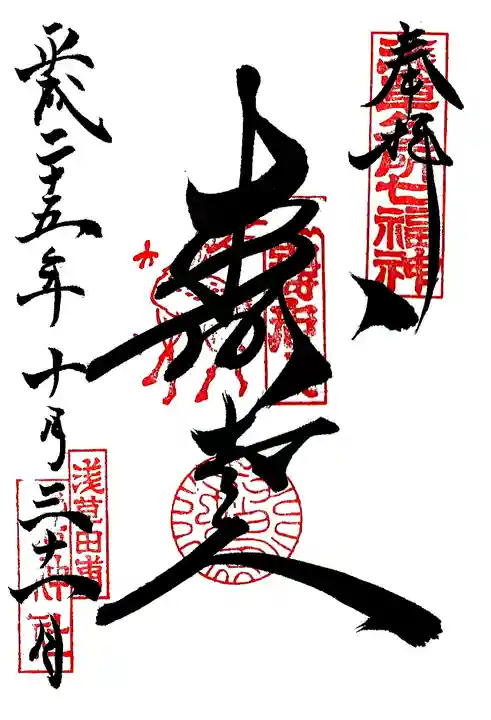 奉拝
浅草名所七福神
寿老人
平成二十五年十月三十一日
浅草田甫